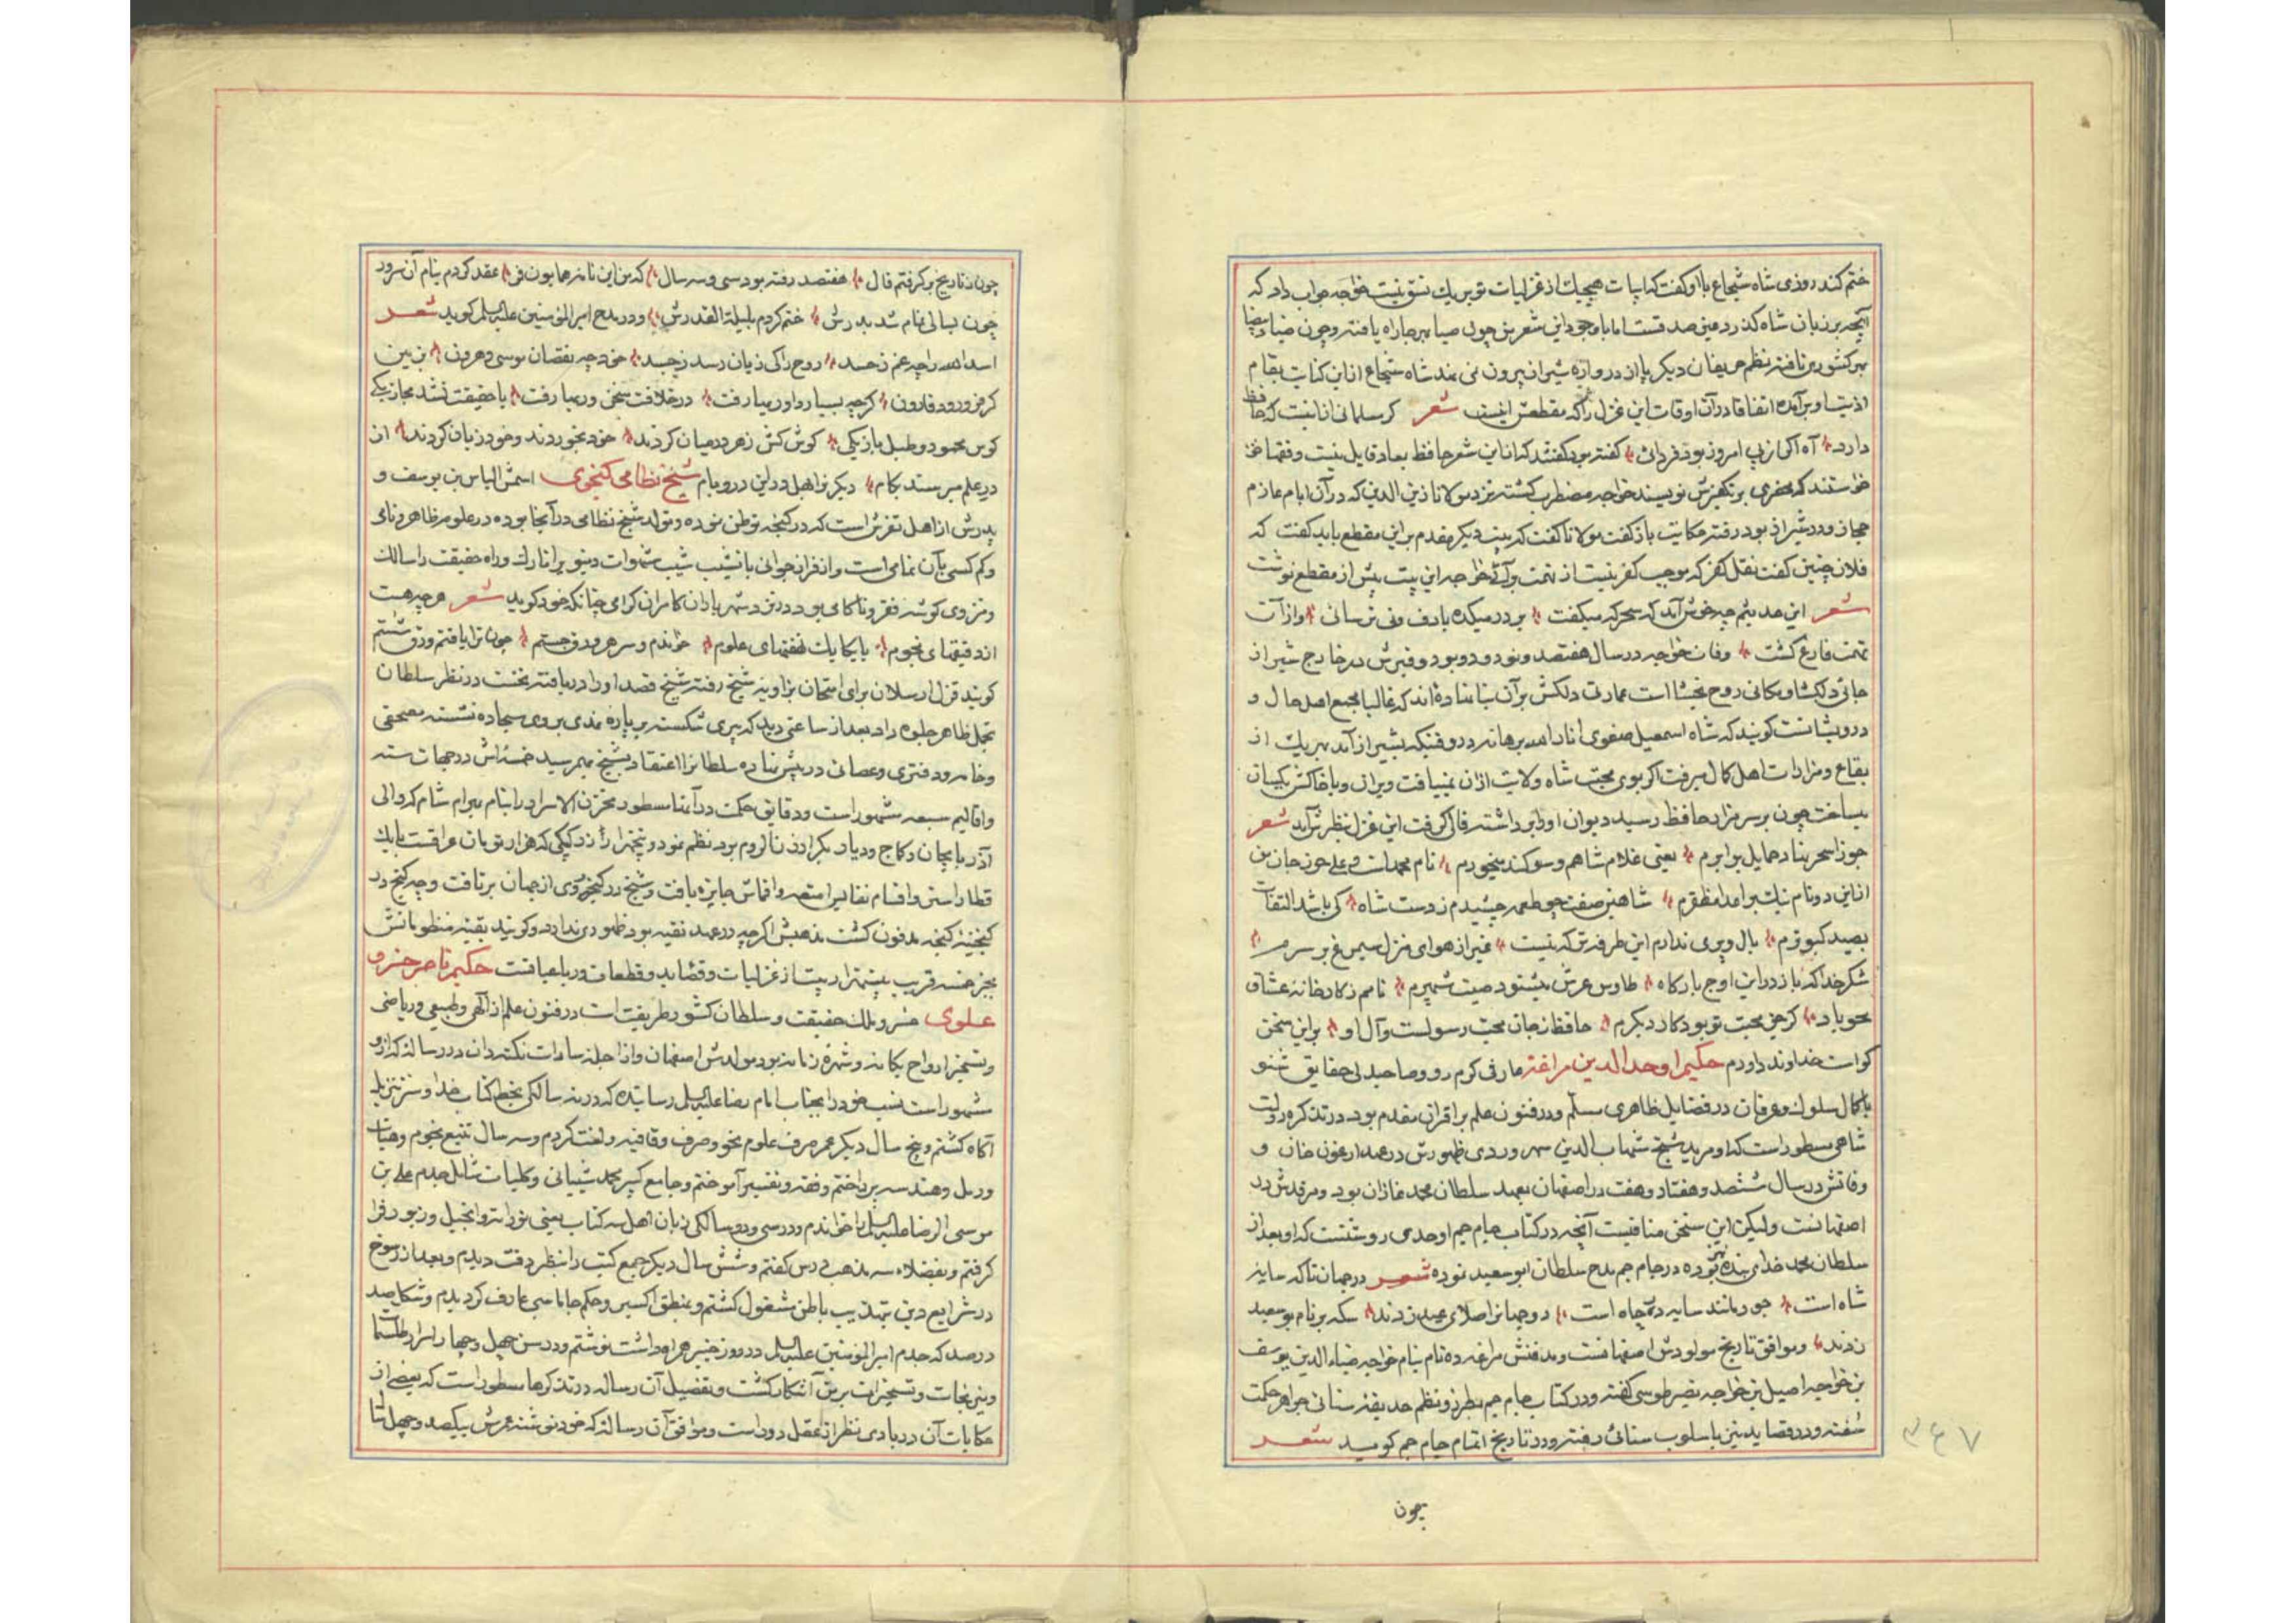 ختم کند روزی شاه شجاع باو گفت که ابیات هیچیک از غزلیات تو بر یک نسق نیست خواجه جواب داد که
آنچه بر زبان شاه گذرد عین صدقست اما با وجود این شعر من چون صبا بهر جا راه یافته و چون ضیاء بیضا
بهر کشور تافته نظم حریفان دیگر پا از دروازه شیراز بیرون نمی نهد شاه شجاع از این کنایت بمقام
اذیت او برآمده اتفاقا در آن اوقات این غزل را که مقطعش اینست شعر گر مسلمانی از اینست که حافظ
دارد آه اگر از پی امروز بود فردائی گفته بود گفتند که از این شعر حافظ بمعاد قایل نیست و فقها
خواستند که محضری بر تکفیرش نویسند خواجه مضطرب گشته نزد مولانا زین الدین که در آن ایام عازم
حجاز و در شیراز بود رفته حکایت باز گفت مولانا گفت که بیت دیگر مقدم بر این مقطع باید گفت که
فلان چنین گفت نقل کفر که موجب کفر نیست از تهمت برآئی خواجه این بیت پیش از مقطع نوشت
شعر این حدیثم چه خوش آمد که سحرگه میگفت بر در میکده با دف و نی ترسائی و از آن
تهمت فارغ گشت وفات خواجه در سال هفتصد و نود و دو بود و قبرش در خارج شیراز
جائی دلگشا و مکانی روح بخشا است عمارتی دلکش بر آن بنا نهاده اند که غالبا مجمع اهل حال و
درویشانست گویند که شاه اسمعیل صفوی انار الله برهانه در وقتیکه بشیراز آمد بهر یک از
بقاع و مزارات اهل کمال میرفت اگر بوی محبت شاه ولایت از آن نمییافت ویران و با خاک یکسان
میساخت چون بر سر مزار حافظ رسید دیوان او را برداشته فال گرفت این غزل بنظرش آمد شعر
جوزا سحر نهاد حمایل برابرم یعنی غلام شاهم و سوگند میخورم نام محمد است و علی حرز جان من
از این دو نام نیک بر اعدا مظفرم شاهین صفت چو طعمه چشیدم ز دست شاه کی باشد التفات
بصید کبوترم بال و پری ندارم این طرفه تر که نیست غیر از هوای منزل سیمرغ بر سرم
شکر خدا که باز در این اوج بارگاه طاوس عرش میشنود صیت شهپرم نامم ز کارخانه عشاق
محو باد گر جز محبت تو بود کار دیگرم حافظ ز جان محب رسولست و آل او بر این سخن
گواست خداوند داورم حکیم اوحدالدین مراغه عارفی گرم رو و صاحبدلی حقایق شنو
با کمال سلوک و عرفان در فضایل ظاهری مسلم و در فنون علم بر اقران مقدم بود در تذکره دولت
شاهی مسطور است که او مرید شیخ شهاب الدین سهروردی ظهورش در عهد ارغون خان و
وفاتش در سال ششصد و هفتاد و هفت در اصفهان بعهد سلطان محمد غازان بود و مرقدش در
اصفهانست ولیکن این سخن منافیست آنچه در کتاب جام جم اوحدی روشنست که او بعد از
سلطان محمد خدای بنده بوده در جام جم مدح سلطان ابو سعید نموده شعر در جهان تا که سایه
شاه است جور مانند سایه در چاه است دو جهانرا صلای عید زدند سکه بر نام بوسعید
زدند و موافق تاریخ مولودش اصفهانست و مدفنش مراغه ده نام بنام خواجه ضیاء الدین یوسف
بن خواجه اصیل بن خواجه نصیر طوسی گفته و در کتاب جام جم بطرز و نظم حدیقه سنائی جواهر حکمت
سفته و در قصاید نیز باسلوب سنائی رفته و در تاریخ اتمام جام جم گوید شعر
چون
۳۴۷
چون ز تاریخ بر گرفتم فال هفتصد رفته بود سی و سه سال که من این نامه همایون فر عقد کردم بنام آن سرور
چون بسالی تمام شد بدرش ختم کردم بلیلة القدرش و در مدح امیرالمؤمنین علیه السلم گوید شعر
اسد الله را چه غم ز حسد روح را کی زیان رسد ز جسد خود چه نقصان موسی و هرون بزمین
گر فرو رود قارون گرچه بسیار داوریها رفت در خلافت سخن وریها رفت با حقیقت نشد مجاز یکی
کوس محمود و طبل باز یکی گوش کش زهر در میان کردند خود بخوردند و خود زیان کردند از
در علم میرسند بکام دیگر نواهل در این در و بام شیخ نظامی گنجوی اسمش الیاس بن یوسف و
پدرش از اهل تفرش است که در گنجه توطن نموده و تولد شیخ نظامی در آنجا بوده در علوم ظاهر و نامی
و کم کسی بآن تمامی است و از قران جوانی با نشیب شیب شهوات دنیوی را تارک و راه حقیقت را سالک
و منزوی گوشه فقر و ناکامی بود در نزد شهریاران کامران گرامی چنانکه خود گوید شعر هر چه هست
از دقیقهای نجوم با یکایک نهفتهای علوم خواندم و سر هر ورق جستم چون ترا یافتم ورق شستم
گویند قزل ارسلان برای امتحان بزاویه شیخ رفته شیخ قصد او را دریافته نخست در نظر سلطان
تجمل ظاهر جلوه داد بعد از ساعتی دید که پیری شکسته بر پاره نمدی بروی سجاده نشسته مصحفی
و خامه و دفتری و عصائی در پیش نهاده سلطانرا اعتقاد بشیخ بهم رسید خمسه اش در جهات سته
و اقالیم سبعه مشهور است و دقایق حکمت در آنها مسطور مخزن الاسرار را بنام بهرام شاه که والی
آذربایجان و دیار بکر ارزن الروم بود نظم نمود و پنجهزار که هزار تومان عراقست با یک
قطار استر و اقسام نفایس امتعه و اقماش جایزه یافت و شیخ در گنجه روی از جهان برتافت و چه گنج در
گنجینه گنجه مدفون گشت مذهبش اگرچه در عهد تقیه بود ظهوری ندارد و گویند بقیه منظوماتش
بجز خمسه قریب بیستهزار بیت از غزلیات و قصاید و قطعات و رباعیاتست حکیم ناصر خسرو
علوی خسرو ملک حقیقت و سلطان کشور طریقت است در فنون علم از الهی و طبیعی و ریاضی
و تسخیر ارواح یگانه و شهره زمانه بود مولدش اصفهان و از اجله سادات نکته دان در رساله که از او
مشهور است نسب خود را بجناب امام رضا علیه السلم رسانیده که در نه سالگی بخط کتاب خدا و سر تنزیل
آگاه گشتم و پنج سال دیگر عمر صرف علوم نحو و صرف و قافیه و لغت کردم و سه سال تتبع نجوم و هیات
و رمل و هندسه پرداختم و فقه و تفسیر آموختم و جامع کبیر محمد شیبانی و کلیات شامل جدم علی بن
موسی الرضا علیه السلم را خواندم و در سی و دو سالگی زبان اهل سه کتاب یعنی توراته و انجیل و زبور فرا
گرفتم و بفضلاء سه مذهب درس گفتم و شش سال دیگر جمیع کتب را بنظر دقت دیدم و بعد از رسوخ
در شرایع دین بتهذیب باطن مشغول گشتم و بمنطق اکسیر و حکم جاماسبی عارف گردیدم و شکل صد
در صد که جدم امیرالمؤمنین علیه السلم در روز خیبر همراه داشت نوشتم و در سن چهل و چهار اسرار طلسما
و نیرنجات و تسخیرات بر من آشکار گشت و تفصیل آن رساله در تذکرها مسطور است که بعضی از
حکایات آن در بادی نظر از عقل دور است و موافق آن رساله که خود نوشته عمرش بیکصد و چهل سال